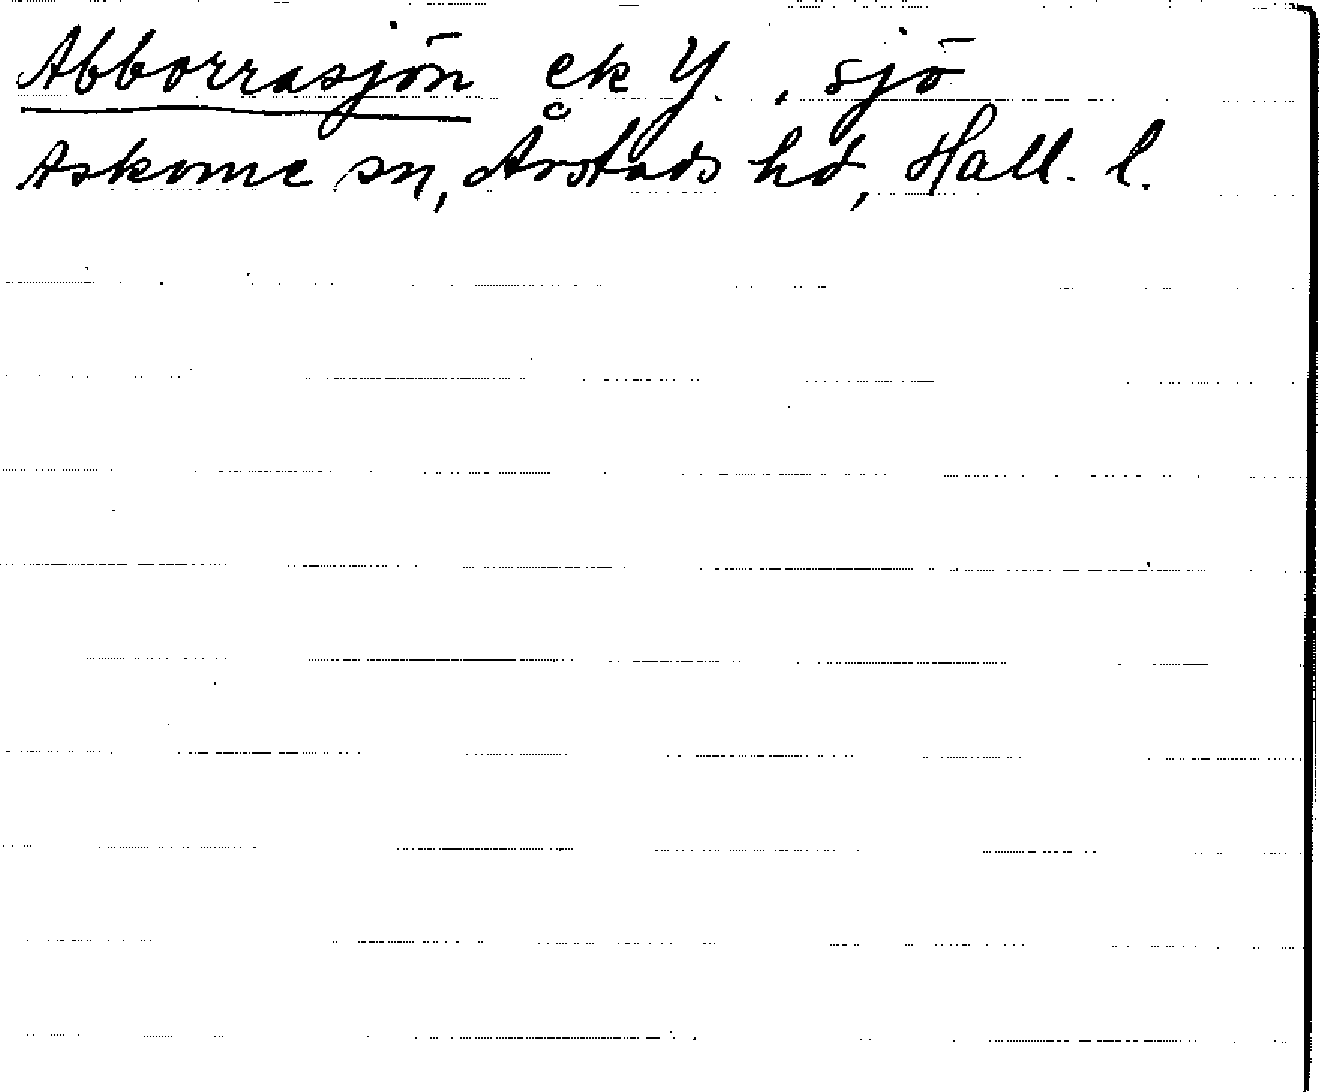 Abborrasjön ek Y., sjö
Askome sn, Årstads hd, Hall. l.